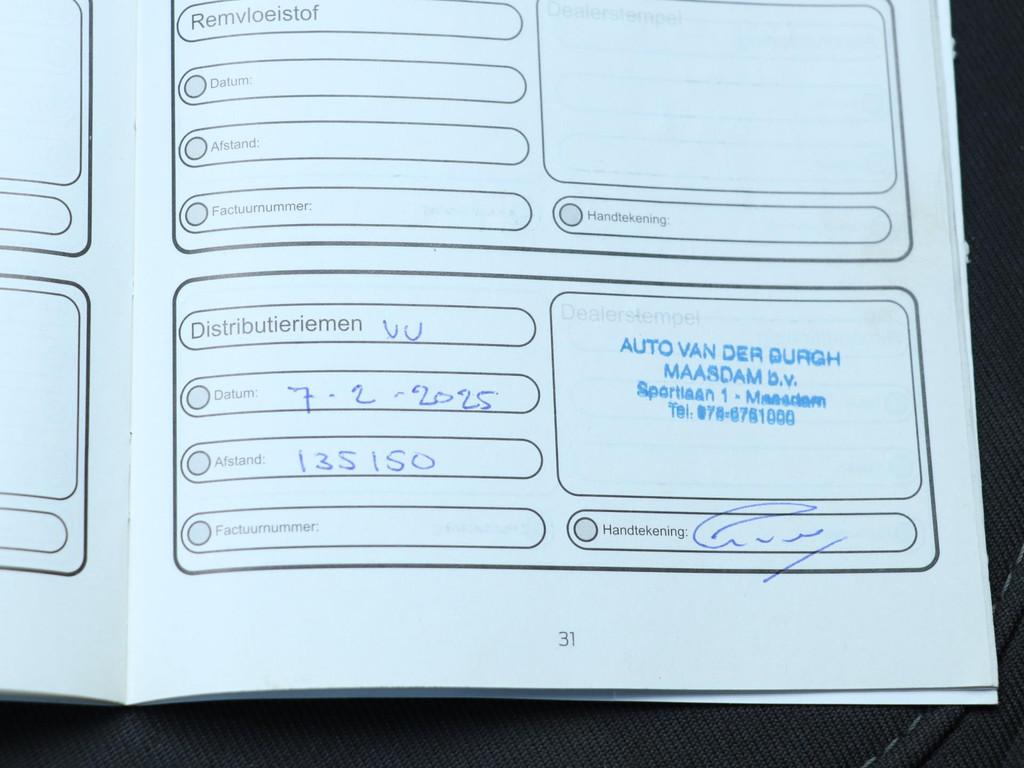 Remvloeistof
Dealerstempel
Datum:
Afstand:
Factuurnummer:
Handtekening:
Distributieriemen VV
Dealerstempel
AUTO VAN DER BURGH
MAASDAM b.v.
Sportlaan 1 - Maasdam
Tel. 078-6761000
Datum: 7-2-2025
Afstand: 135150
Factuurnummer:
Handtekening:
31